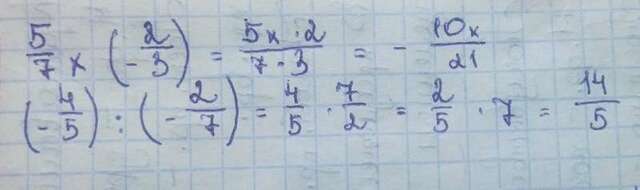 5/7 x (-2/3) = 5x · 2/7 · 3 = - 10x/21
(-4/5) : (-2/7) = 4/5 · 7/2 = 2/5 · 7 = 14/5